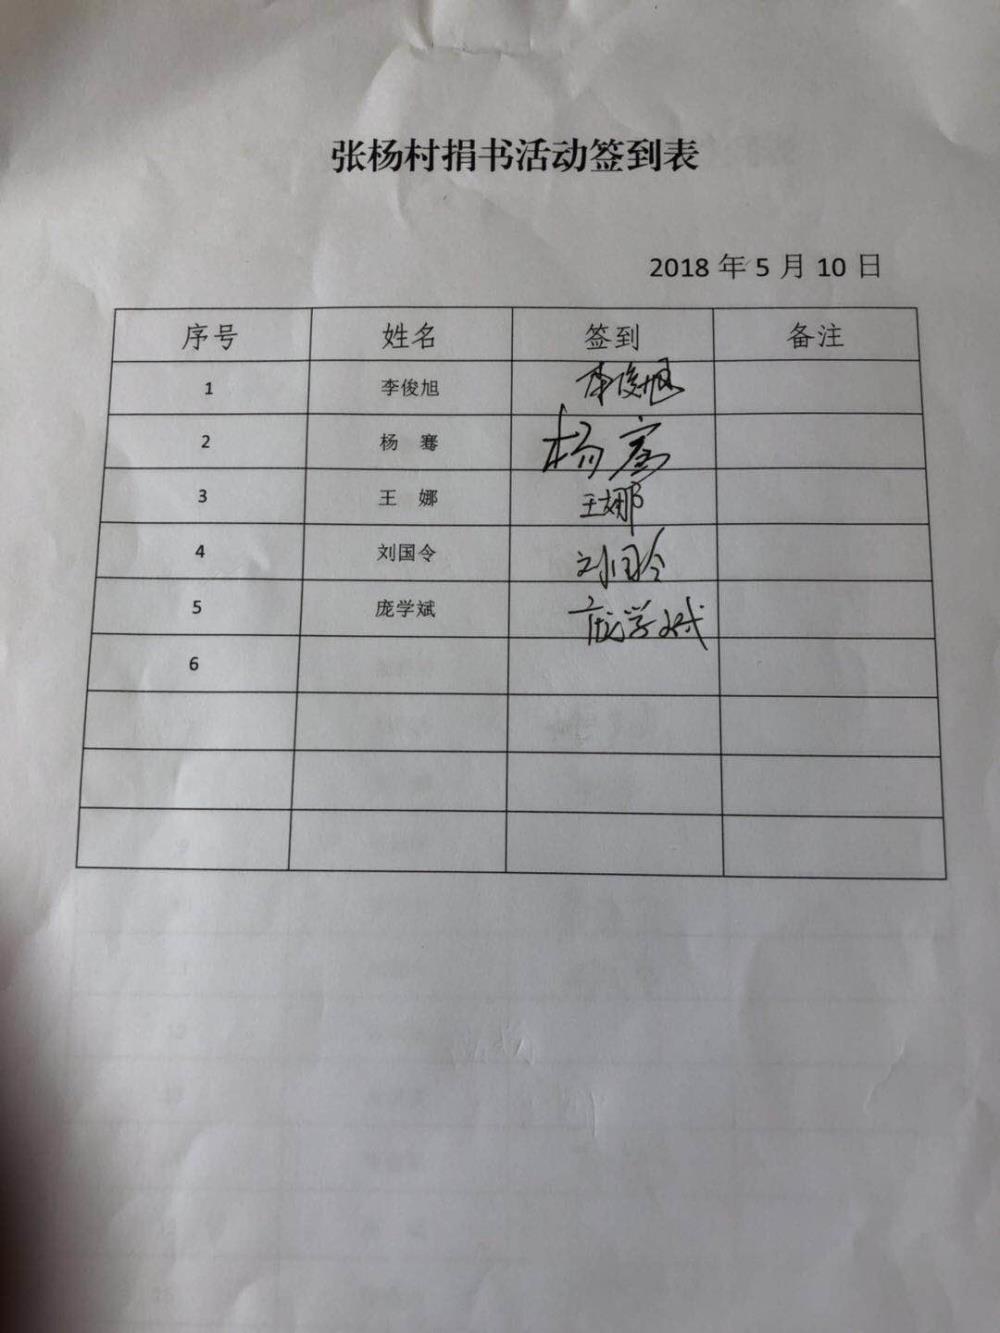 张杨村捐书活动签到表
2018 年 5 月 10 日
序号 姓名 签到 备注
1 李俊旭 李俊旭
2 杨 骞 杨骞
3 王 娜 王娜
4 刘国令 刘国令
5 庞学斌 庞学斌
6